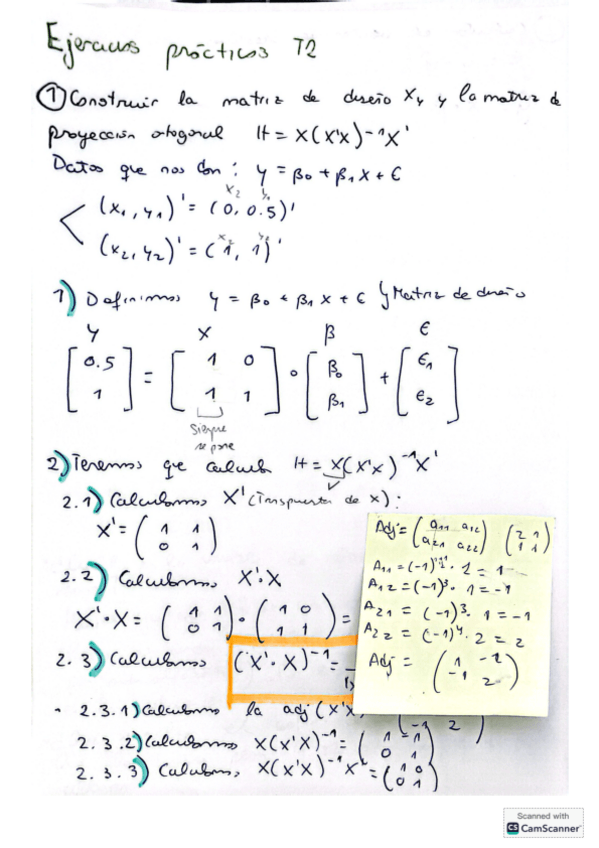 Ejercicios prácticos T2
① Construir la matriz de diseño X, y la matriz de
proyección ortogonal H = X(X'X)⁻¹X'
Datos que nos dan: y = β₀ + β₁X + ε
(x₁, y₁)' = (0, 0.5)'
(x₂, y₂)' = (1, 1)'
1) Definimos y = β₀ + β₁ x + ε y Matriz de diseño
Y X β ε
[0.5 1] = [1 0 1 1] · [β₀ β₁] + [ε₁ ε₂]
Siempre
se pone
2) Tenemos que calcular H = X(X'X)⁻¹X'
2.1) Calculamos X' (Transpuesta de x):
X' = (1 1 0 1)
2.2) Calculamos X'·X
X'·X = (1 1 0 1) · (1 0 1 1) =
2.3) Calculamos (X'·X)⁻¹ =
2.3.1) Calculamos la adj (X'X
-1 2
2.3.2) Calculamos X(X'X)⁻¹ = (1 -1 0 1)
2.3.3) Calculamos X(X'X)⁻¹X' = (1 0 0 1)
Adj = (a₁₁ a₁₂ a₂₁ a₂₂) (2 1 1 1)
A₁₁ = (-1)¹⁺¹ · 1 = 1
A₁₂ = (-1)³ · 1 = -1
A₂₁ = (-1)³ · 1 = -1
A₂₂ = (-1)⁴ · 2 = 2
Adj = (1 -1 -1 2)
Scanned with
CS CamScanner